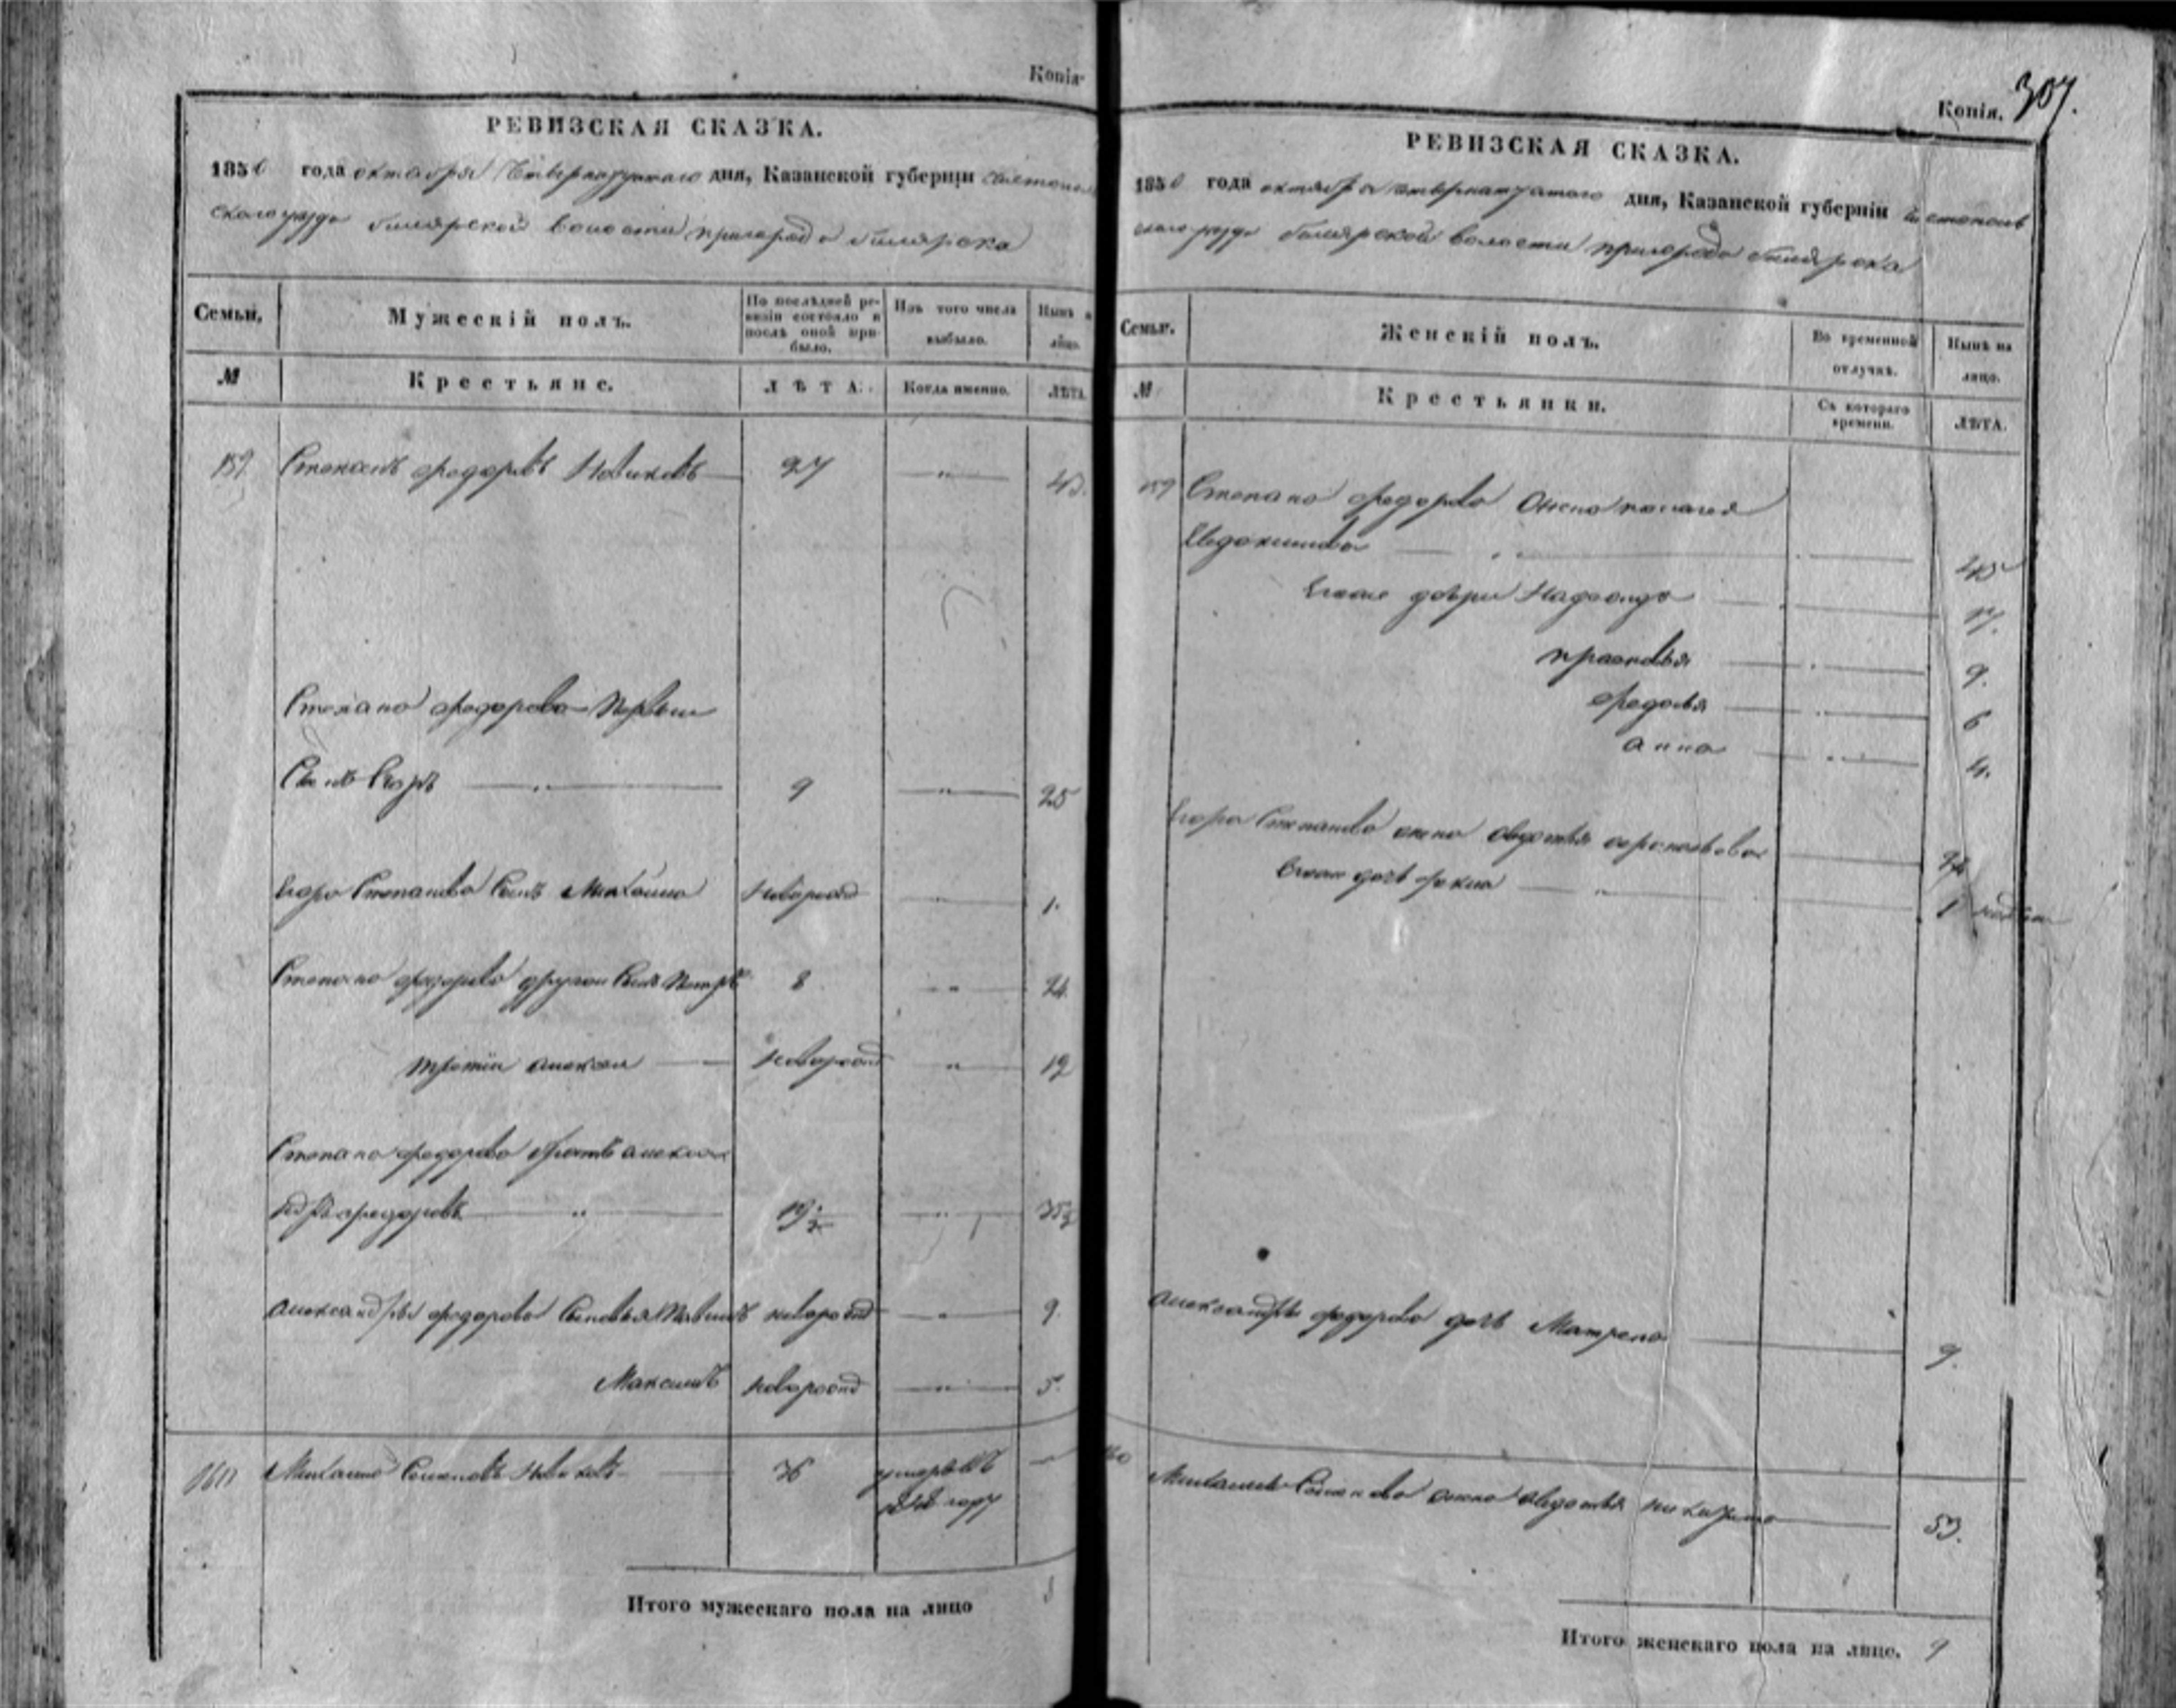 Копія
РЕВИЗСКАЯ СКАЗКА.
1850 года октября Четырнадцатого дня, Казанской губерніи Чистополь
ского уезда билярской волости пригорода билярска
Семьи.
Мужескій полъ.
По послѣдней ре-
визіи состояло и
послѣ оной при-
было.
Изъ того числа
выбыло.
Нынѣ на
лицо.
№
Крестьяне.
ЛѢТА.
Когда именно.
ЛѢТА.
159 Степанъ федоровъ Новиковъ 27 43.
Степана федорова Первый
Сынъ Егоръ 9 25
Егора Степанова Сынъ Михаила Новорожд 1.
Степана федорова другой Сынъ Петръ 8 24
третий алексей Новорожд 12
Степана федорова братъ алексан
ндръ федоровъ 19½ 35½
александры федорова Сыновья новорожд 9.
Максимъ новорожд 5.
160 Михаила Семеновъ Новиковъ 36 умеръ въ
году
Итого мужескаго пола на лицо 8
307.
Копія.
РЕВИЗСКАЯ СКАЗКА.
1850 года октября четырнатцатого дня, Казанской губерніи Чистополь
ского уезда билярской волости пригорода билярска
Семьи.
Женскій полъ.
Во временной
отлучкѣ.
Нынѣ на
лицо.
№
Крестьянки.
Съ котораго
времени.
ЛѢТА.
159 Степана федорова жена пелагея
Евдокимова 45
дочери Надежда 17.
прасковья 9.
федосья 6
анна 4.
Егора Степанова жена авдотья 24
дочь фекла 1
александры федорова дочь Матрена 9.
160 Михаила Семенова жена авдотья 53.
Итого женскаго пола на лицо. 9